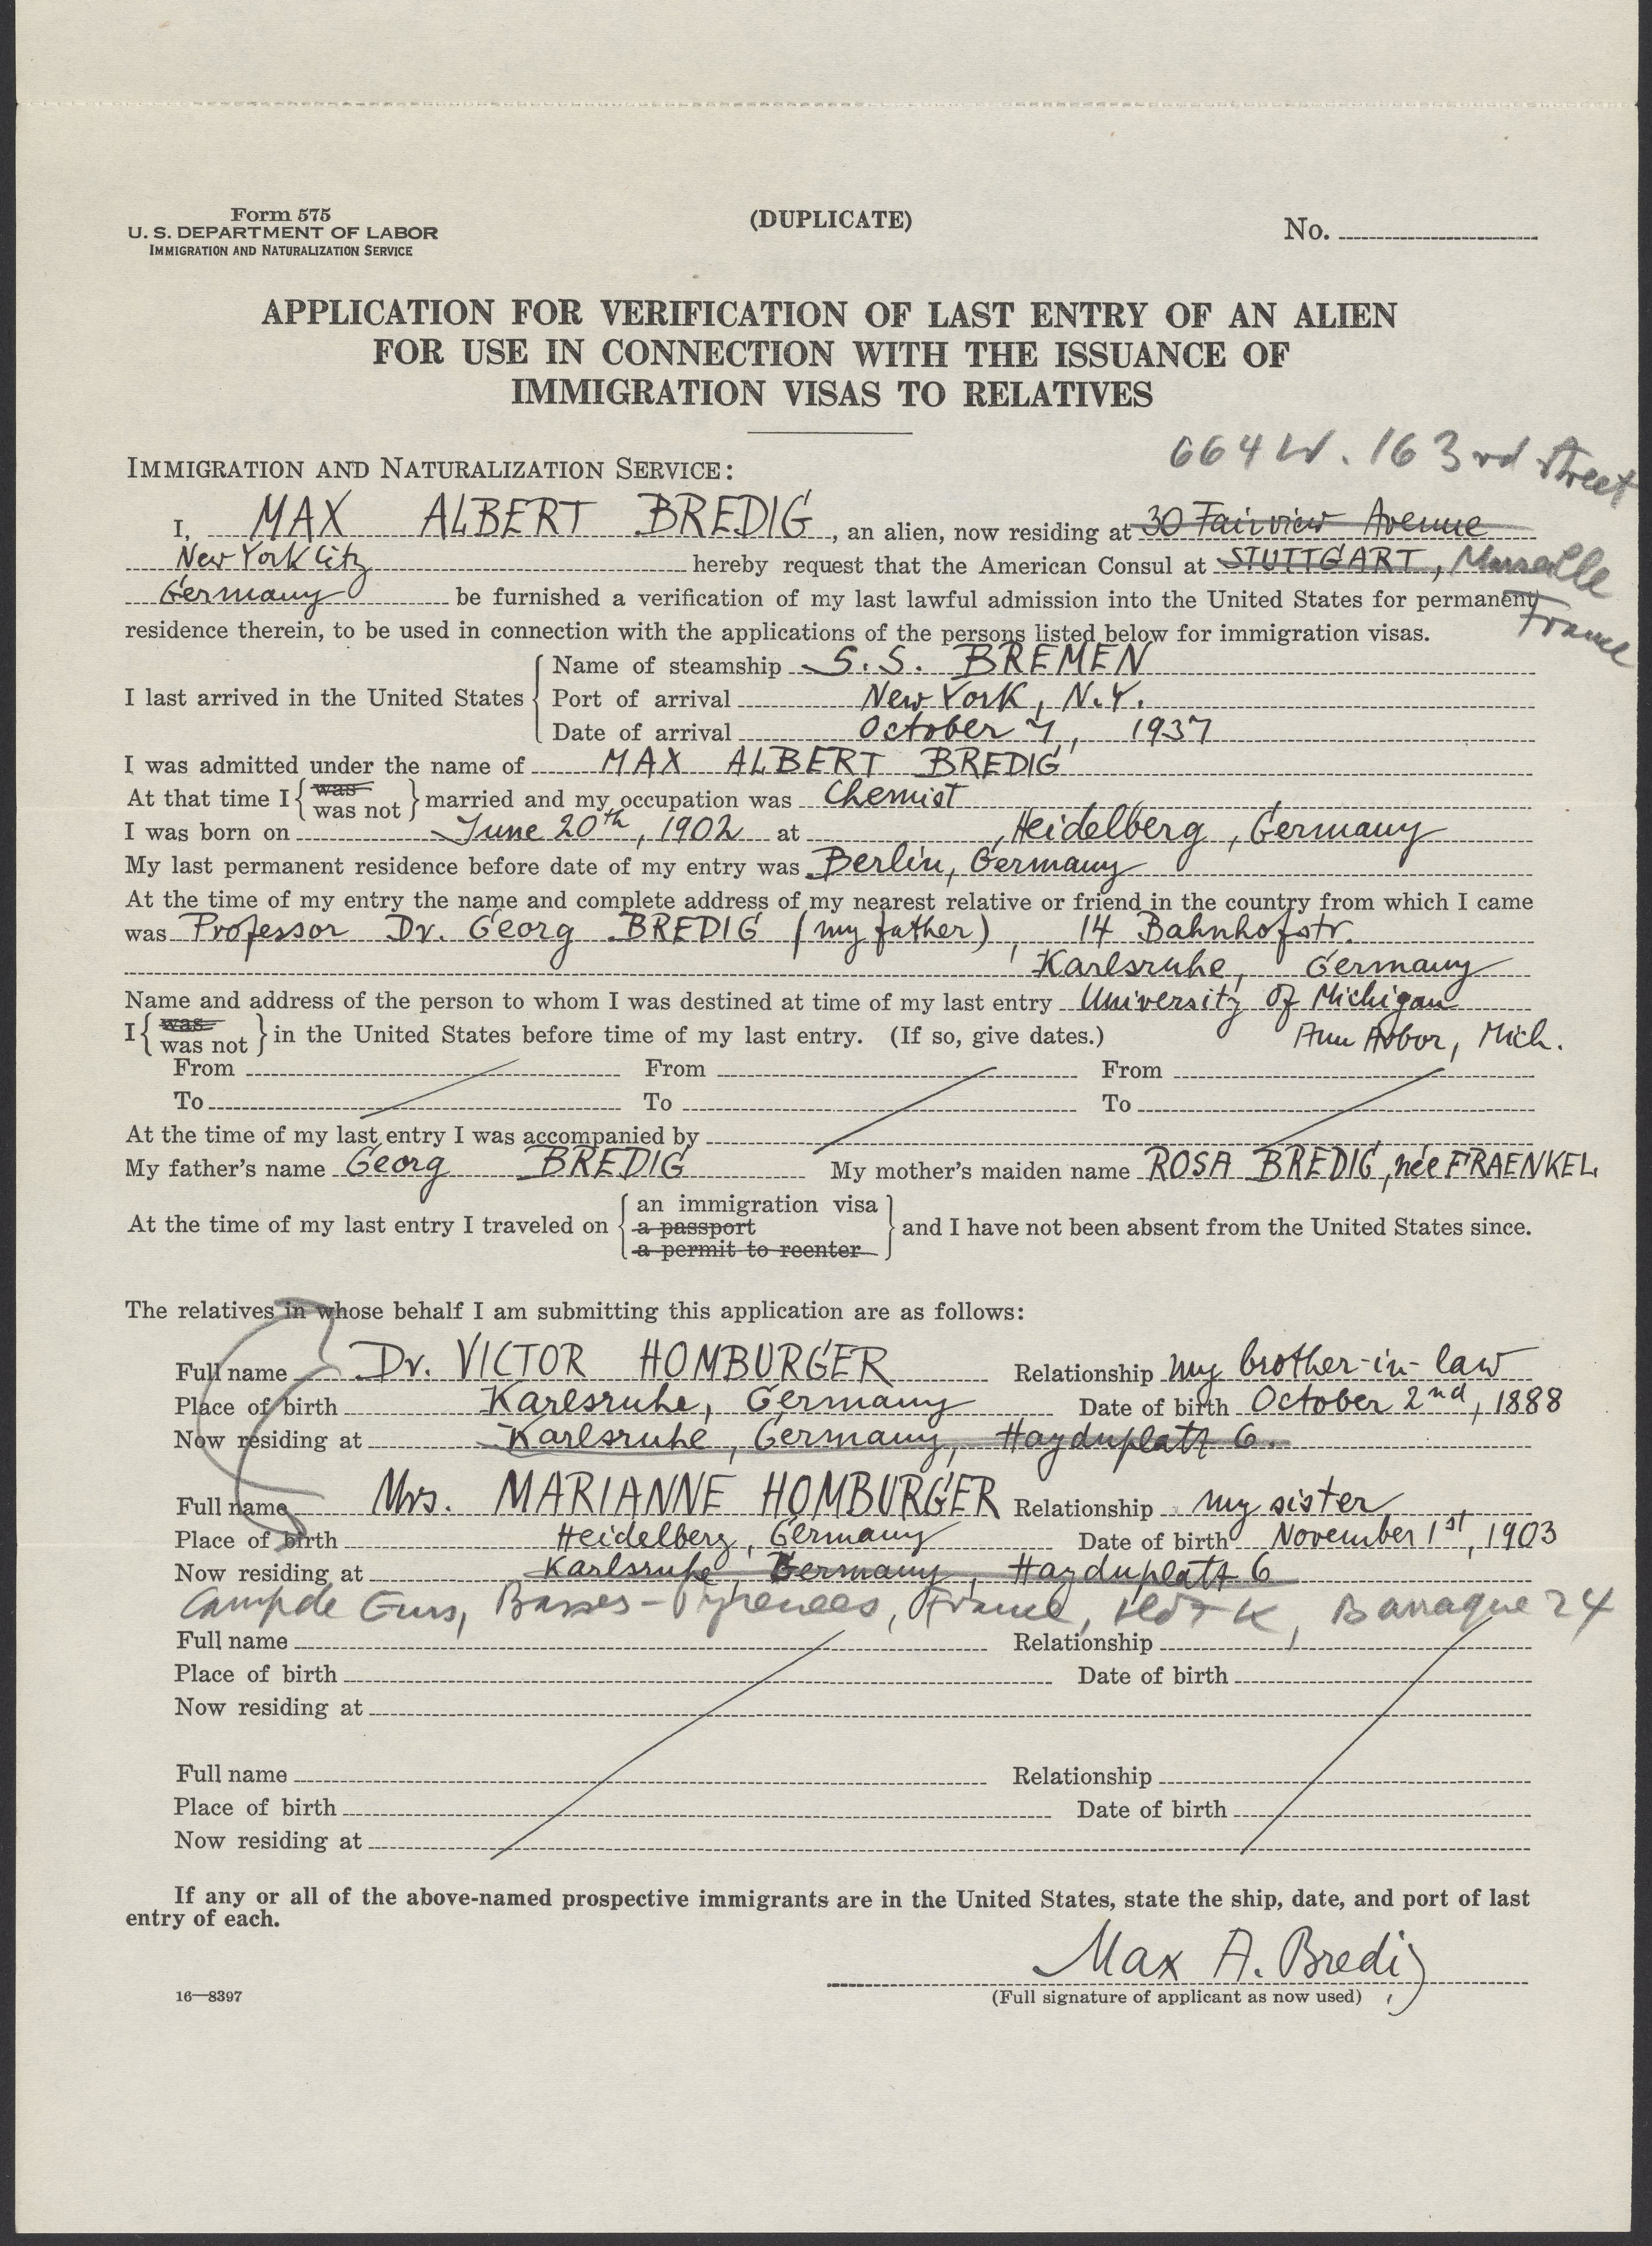 Form 575
U. S. DEPARTMENT OF LABOR
IMMIGRATION AND NATURALIZATION SERVICE
(DUPLICATE)
No.
APPLICATION FOR VERIFICATION OF LAST ENTRY OF AN ALIEN
FOR USE IN CONNECTION WITH THE ISSUANCE OF
IMMIGRATION VISAS TO RELATIVES
664 W. 163rd Street
IMMIGRATION AND NATURALIZATION SERVICE:
I, MAX ALBERT BREDIG, an alien, now residing at 30 Fairview Avenue
New York City hereby request that the American Consul at STUTTGART, Marseille
France
Germany be furnished a verification of my last lawful admission into the United States for permanent
residence therein, to be used in connection with the applications of the persons listed below for immigration visas.
I last arrived in the United States
Name of steamship S.S. BREMEN
Port of arrival New York, N.Y.
Date of arrival October 7, 1937
I was admitted under the name of MAX ALBERT BREDIG
At that time I { was was not } married and my occupation was Chemist
I was born on June 20th, 1902 at Heidelberg, Germany
My last permanent residence before date of my entry was Berlin, Germany
At the time of my entry the name and complete address of my nearest relative or friend in the country from which I came
was Professor Dr. Georg BREDIG (my father), 14 Bahnhofstr.
Karlsruhe, Germany
Name and address of the person to whom I was destined at time of my last entry University of Michigan
Ann Arbor, Mich.
I { was was not } in the United States before time of my last entry. (If so, give dates.)
From From From
To To To
At the time of my last entry I was accompanied by
My father's name Georg BREDIG My mother's maiden name ROSA BREDIG, née FRAENKEL
At the time of my last entry I traveled on { an immigration visa a passport a permit to reenter } and I have not been absent from the United States since.
The relatives in whose behalf I am submitting this application are as follows:
Full name Dr. VICTOR HOMBURGER Relationship my brother-in-law
Place of birth Karlsruhe, Germany Date of birth October 2nd, 1888
Now residing at Karlsruhe, Germany, Hayduplatz 6.
Full name Mrs. MARIANNE HOMBURGER Relationship my sister
Place of birth Heidelberg, Germany Date of birth November 1st, 1903
Now residing at Karlsruhe, Germany, Hayduplatz 6
Camp de Gurs, Basses-Pyrenees, France, K, Baraque 24
Full name Relationship
Place of birth Date of birth
Now residing at
Full name Relationship
Place of birth Date of birth
Now residing at
If any or all of the above-named prospective immigrants are in the United States, state the ship, date, and port of last
entry of each.
Max A. Bredig
(Full signature of applicant as now used)
16—8397